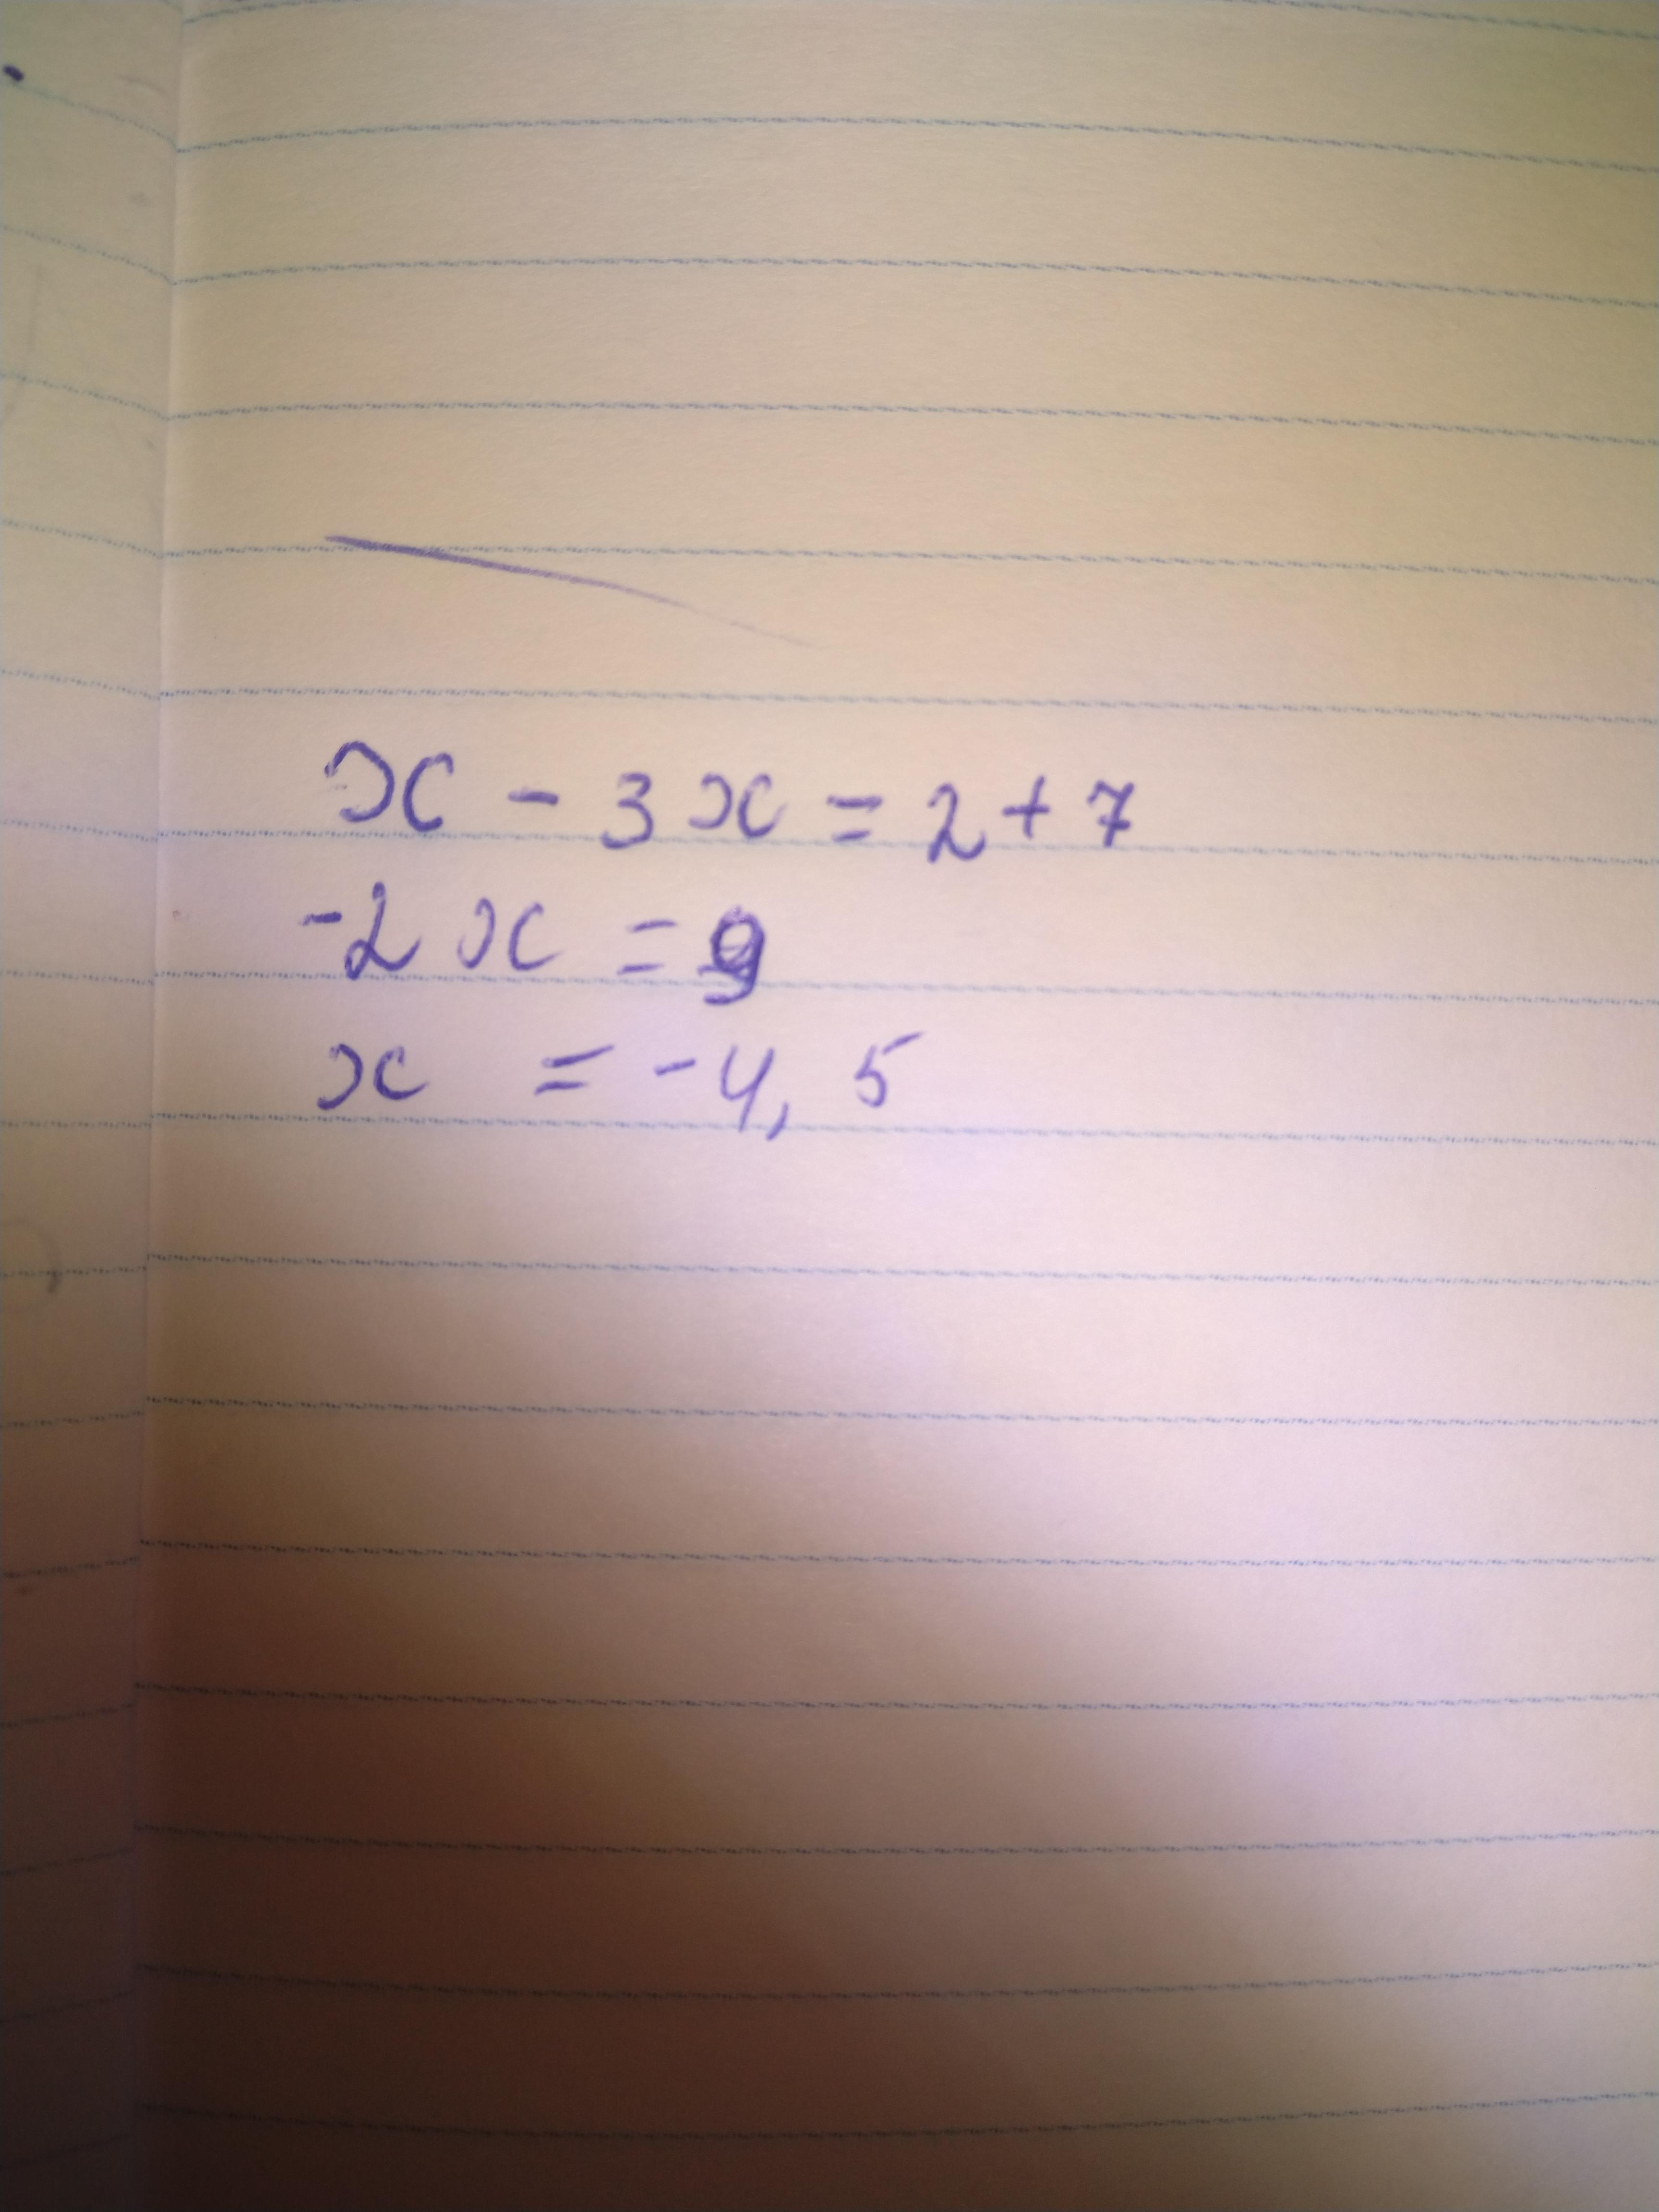 x - 3x = 2 + 7
-2x = 9
x = -4,5